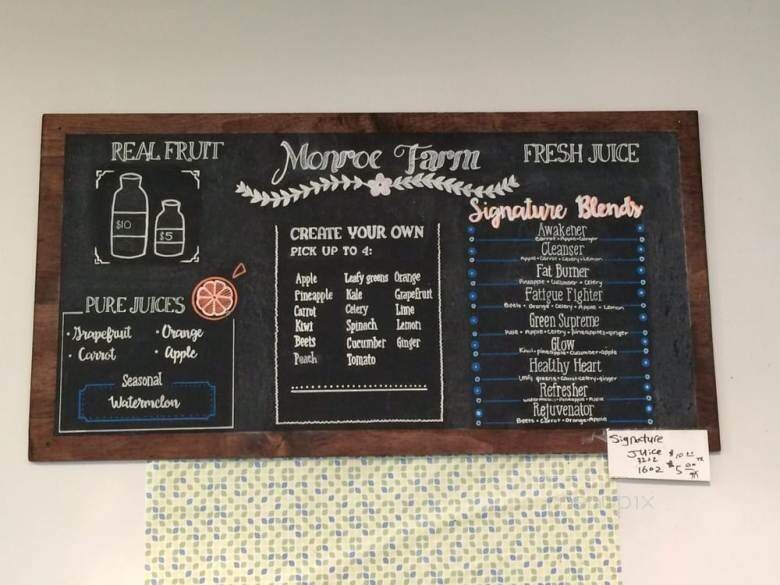 REAL FRUIT
Monroe Farm
FRESH JUICE
$10
$5
PURE JUICES
• Grapefruit • Orange
• Carrot • Apple
Seasonal
Watermelon
CREATE YOUR OWN
PICK UP TO 4:
Apple Leafy greens Orange
Pineapple Kale Grapefruit
Carrot Celery Lime
Kiwi Spinach Lemon
Beets Cucumber Ginger
Peach Tomato
Signature Blends
Awakener
Carrot • Apple • Ginger
Cleanser
Apple • Carrot • Celery • Lemon
Fat Burner
Pineapple • Cucumber • Celery
Fatigue Fighter
Beets • Orange • Celery • Apple • Lemon
Green Supreme
Kale • Apple • Celery • Pineapple • Ginger
Glow
Kiwi • Pineapple • Cucumber • Apple
Healthy Heart
Leafy greens • Carrot • Celery • Ginger
Refresher
Watermelon • Pineapple • Apple
Rejuvenator
Beets • Carrot • Orange • Apple
Signature
Juice
32oz $10
16oz $5.00